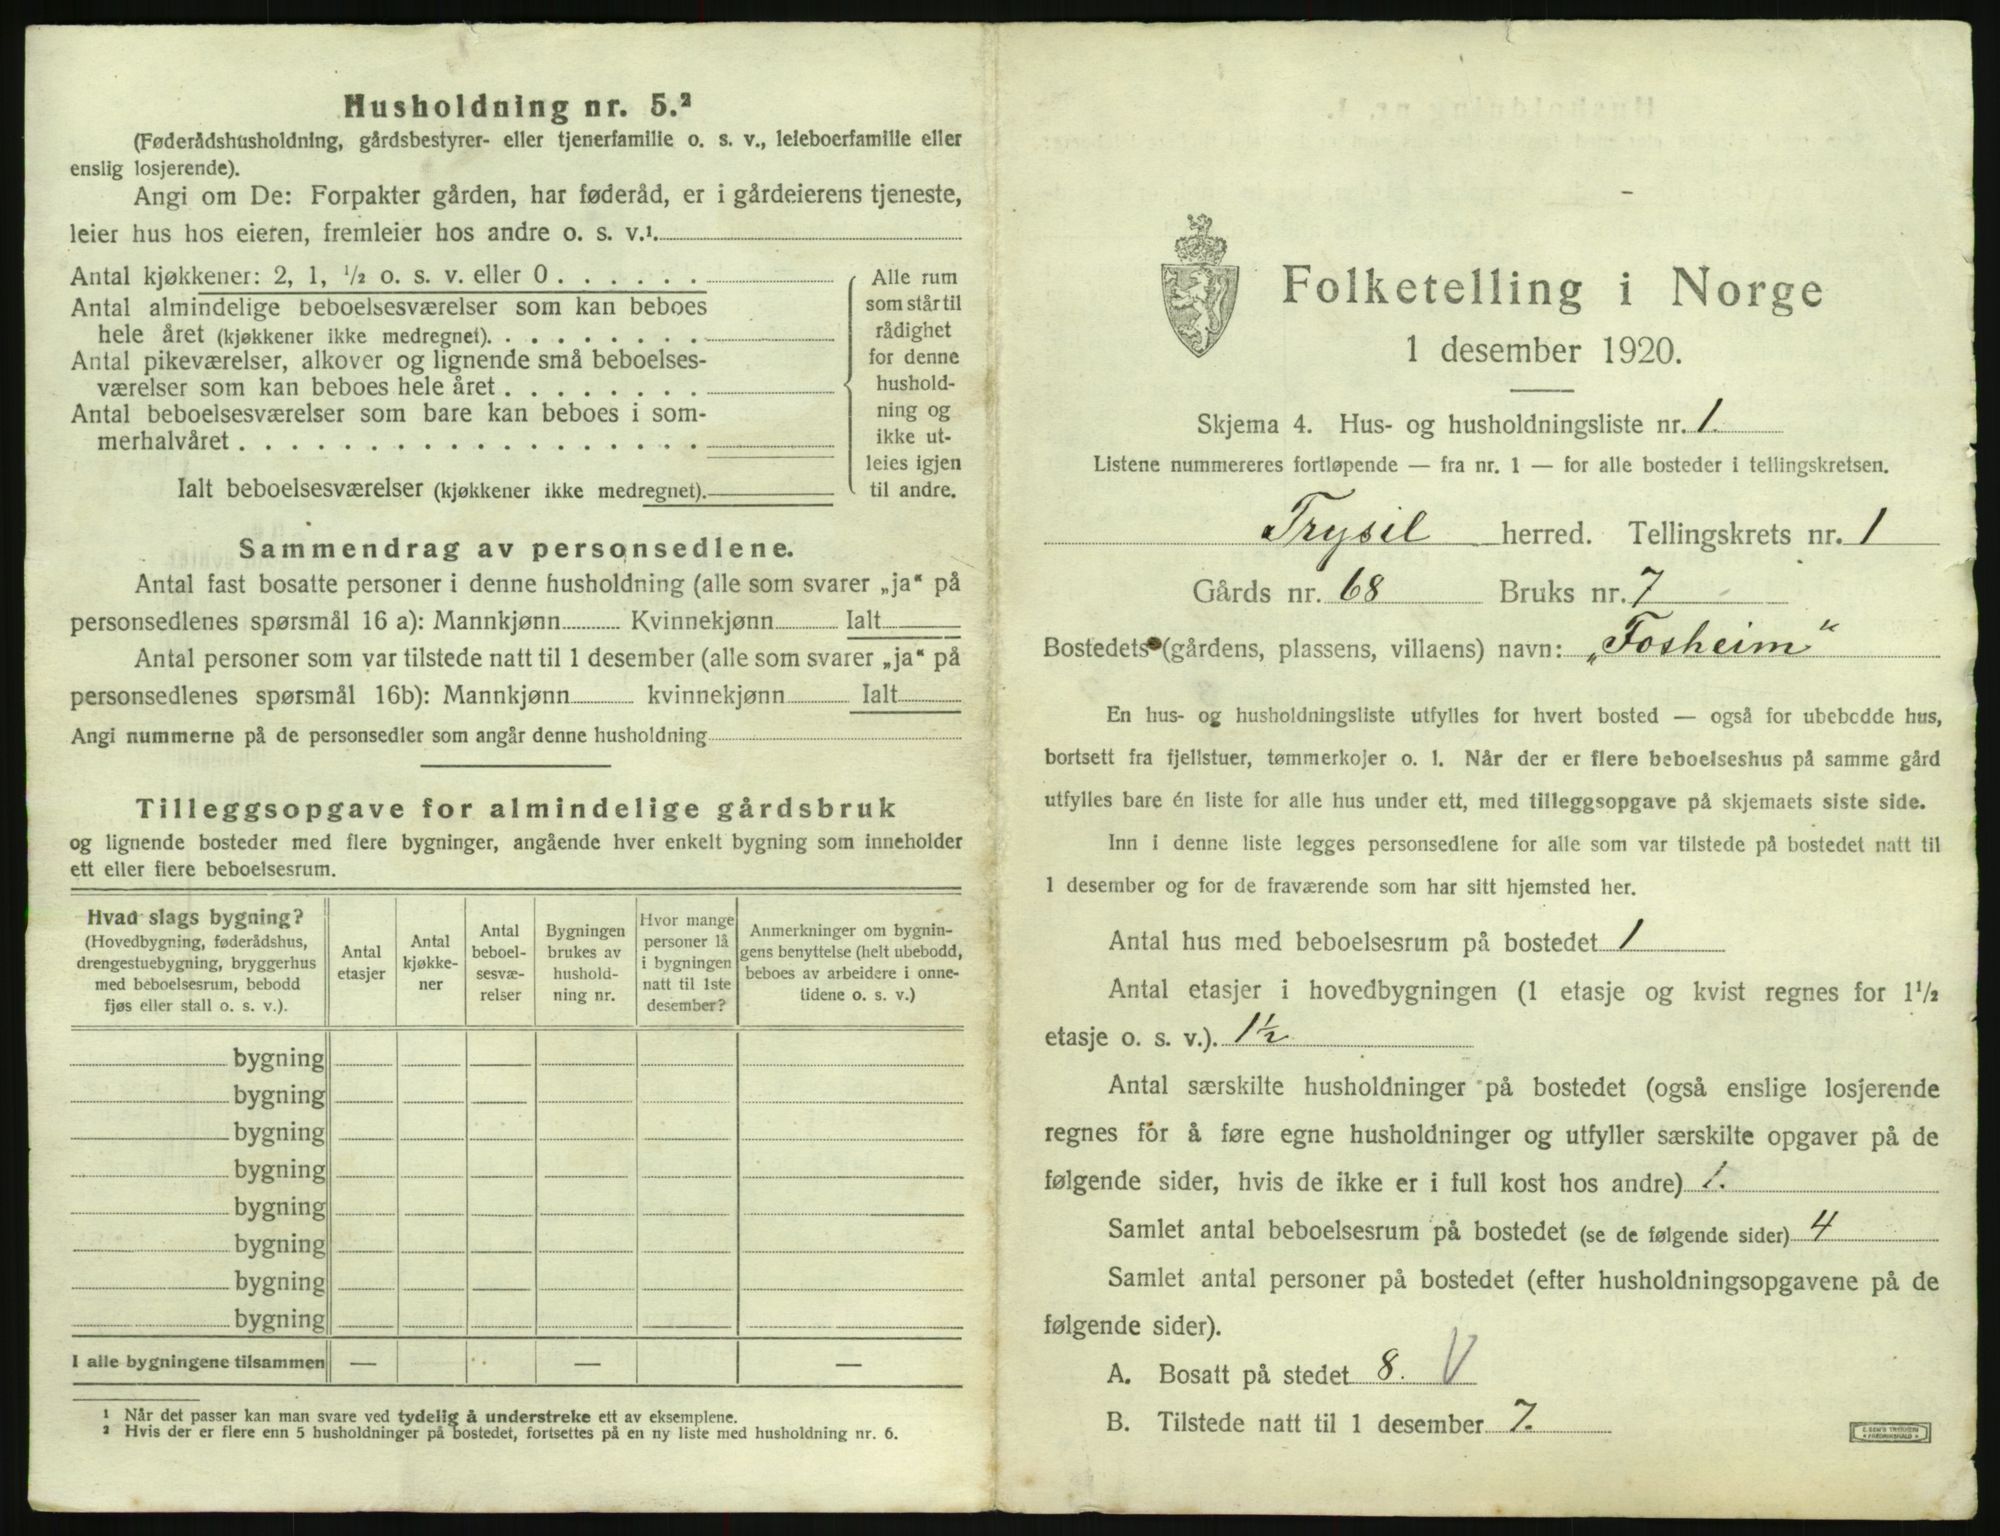 Husholdning nr. 5.²
(Føderådshusholdning, gårdsbestyrer- eller tjenerfamilie o. s. v., leieboerfamilie eller
enslig losjerende).
Angi om De: Forpakter gården, har føderåd, er i gårdeierens tjeneste,
leier hus hos eieren, fremleier hos andre o. s. v.¹.
Antal kjøkkener: 2, 1, ½ o. s. v. eller 0 . . . . . .
Antal almindelige beboelsesværelser som kan beboes
hele året (kjøkkener ikke medregnet). . . . . . . . .
Antal pikeværelser, alkover og lignende små beboelses-
værelser som kan beboes hele året . . . . . . . .
Antal beboelsesværelser som bare kan beboes i som-
merhalvåret . . . . . . . . . . . . . . . . . .
Ialt beboelsesværelser (kjøkkener ikke medregnet).
Alle rum
som står til
rådighet
for denne
hushold-
ning og
ikke ut-
leies igjen
til andre.
Sammendrag av personsedlene.
Antal fast bosatte personer i denne husholdning (alle som svarer „ja“ på
personsedlenes spørsmål 16 a): Mannkjønn Kvinnekjønn Ialt
Antal personer som var tilstede natt til 1 desember (alle som svarer „ja“ på
personsedlenes spørsmål 16b): Mannkjønn kvinnekjønn Ialt
Angi nummerne på de personsedler som angår denne husholdning
Tilleggsopgave for almindelige gårdsbruk
og lignende bosteder med flere bygninger, angående hver enkelt bygning som inneholder
ett eller flere beboelsesrum.
Hvad slags bygning?
(Hovedbygning, føderådshus,
drengestuebygning, bryggerhus
med beboelsesrum, bebodd
fjøs eller stall o. s. v.).
Antal
etasjer
Antal
kjøkke-
ner
Antal
beboel-
sesvæ-
relser
Bygningen
brukes av
hushold-
ning nr.
Hvor mange
personer lå
i bygningen
natt til 1ste
desember?
Anmerkninger om bygnin-
gens benyttelse (helt ubebodd,
beboes av arbeidere i onne-
tidene o. s. v.)
bygning
bygning
bygning
bygning
bygning
bygning
bygning
bygning
I alle bygningene tilsammen — — —
¹ Når det passer kan man svare ved tydelig å understreke ett av eksemplene.
² Hvis der er flere enn 5 husholdninger på bostedet, fortsettes på en ny liste med husholdning nr. 6.
Folketelling i Norge
1 desember 1920.
Skjema 4. Hus- og husholdningsliste nr. 1.
Listene nummereres fortløpende — fra nr. 1 — for alle bosteder i tellingskretsen.
Trysil herred. Tellingskrets nr. 1
Gårds nr. 68 Bruks nr. 7
Bostedets (gårdens, plassens, villaens) navn: „Fosheim“
En hus- og husholdningsliste utfylles for hvert bosted — også for ubebodde hus,
bortsett fra fjellstuer, tømmerkojer o. l. Når der er flere beboelseshus på samme gård
utfylles bare én liste for alle hus under ett, med tilleggsopgave på skjemaets siste side.
Inn i denne liste legges personsedlene for alle som var tilstede på bostedet natt til
1 desember og for de fraværende som har sitt hjemsted her.
Antal hus med beboelsesrum på bostedet 1
Antal etasjer i hovedbygningen (1 etasje og kvist regnes for 1½
etasje o. s. v.). 1½
Antal særskilte husholdninger på bostedet (også enslige losjerende
regnes for å føre egne husholdninger og utfyller særskilte opgaver på de
følgende sider, hvis de ikke er i full kost hos andre) 1.
Samlet antal beboelsesrum på bostedet (se de følgende sider) 4
Samlet antal personer på bostedet (efter husholdningsopgavene på de
følgende sider).
A. Bosatt på stedet 8. V
B. Tilstede natt til 1 desember 7.